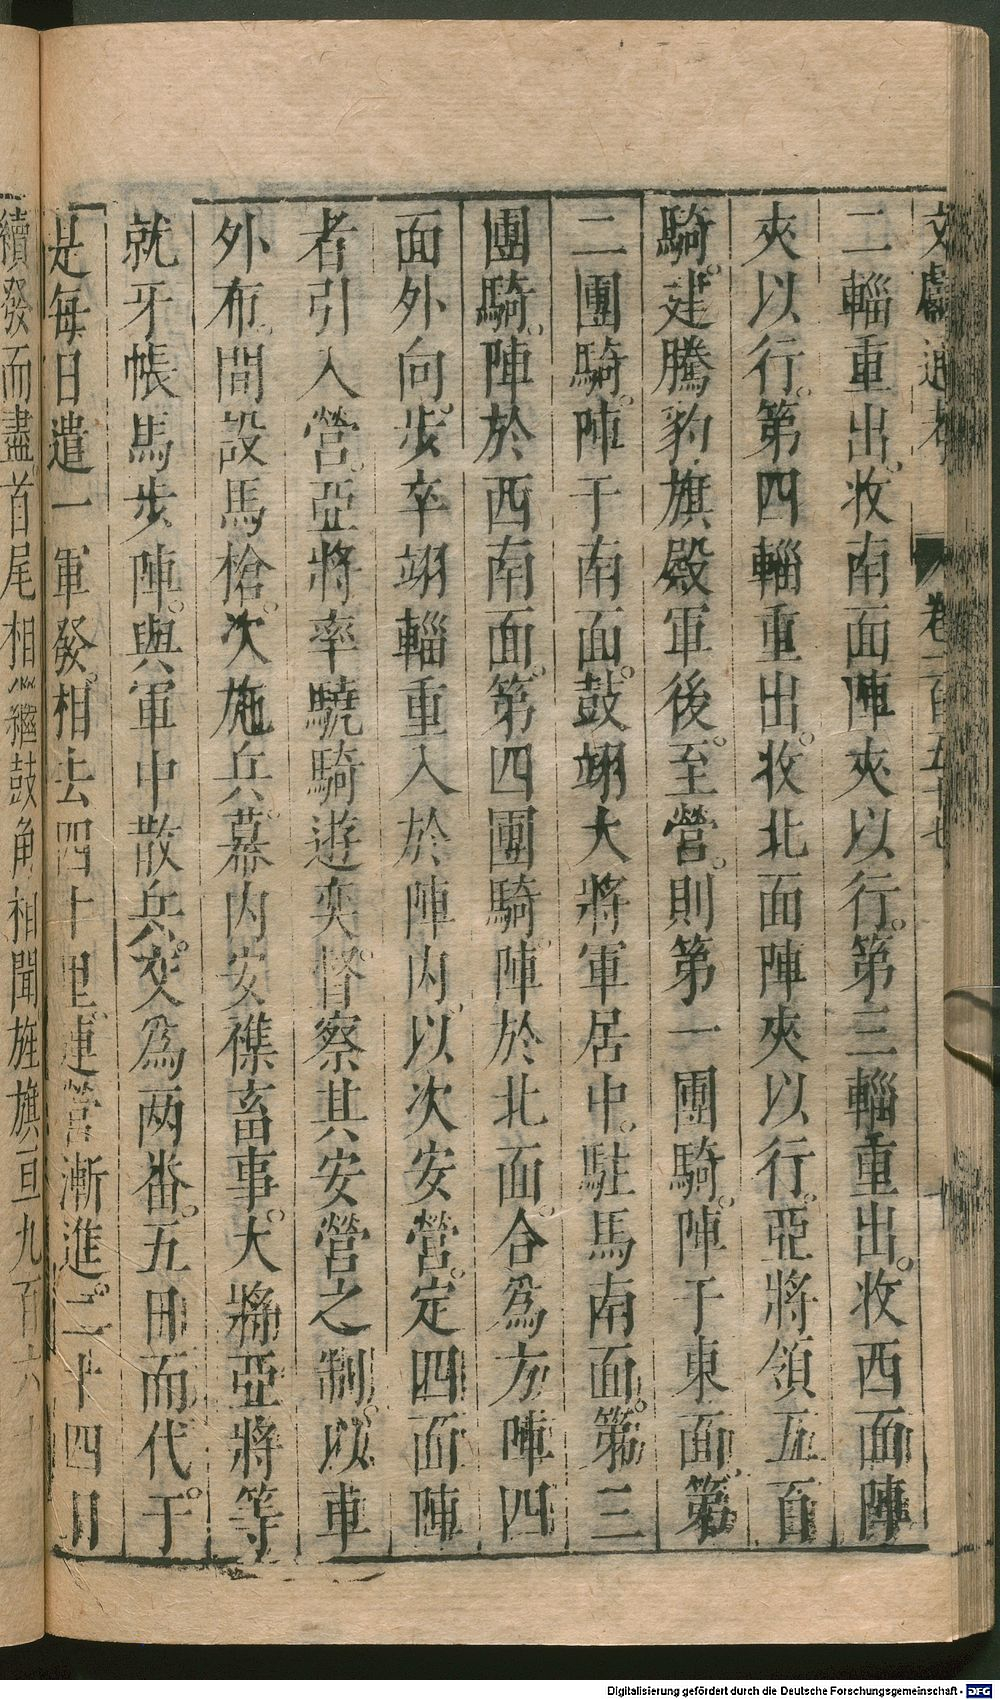 文獻通考 卷一百五十七
二輜重出。收南面陣夾以行。第三輜重出。收西面陣
夾以行。第四輜重出。收北面陣夾以行。亞將領五百
騎。建騰豹旗殿軍後。至營。則第一團騎。陣于東面。第
二團騎。陣于南面。鼓翊大將軍居中。駐馬南面。第三
團騎。陣於西南面。第四團騎。陣於北面。合爲方陣四
面外向。步卒翊輜重入於陣內。以次安營。定四面陣
者引入營。亞將率驍騎遊奕。督察其安營之制。以車
外布。間設馬槍。次施兵。幕內安襍畜事。大將亞將等
就牙帳馬步陣。與軍中散兵。交爲兩番。五日而代。于
是每日遣一軍發。相去四十里。連營漸進。二十四日
續發而盡。首尾相繼鼓角相聞旌旗亘九百六十
Digitalisierung gefördert durch die Deutsche Forschungsgemeinschaft - DFG